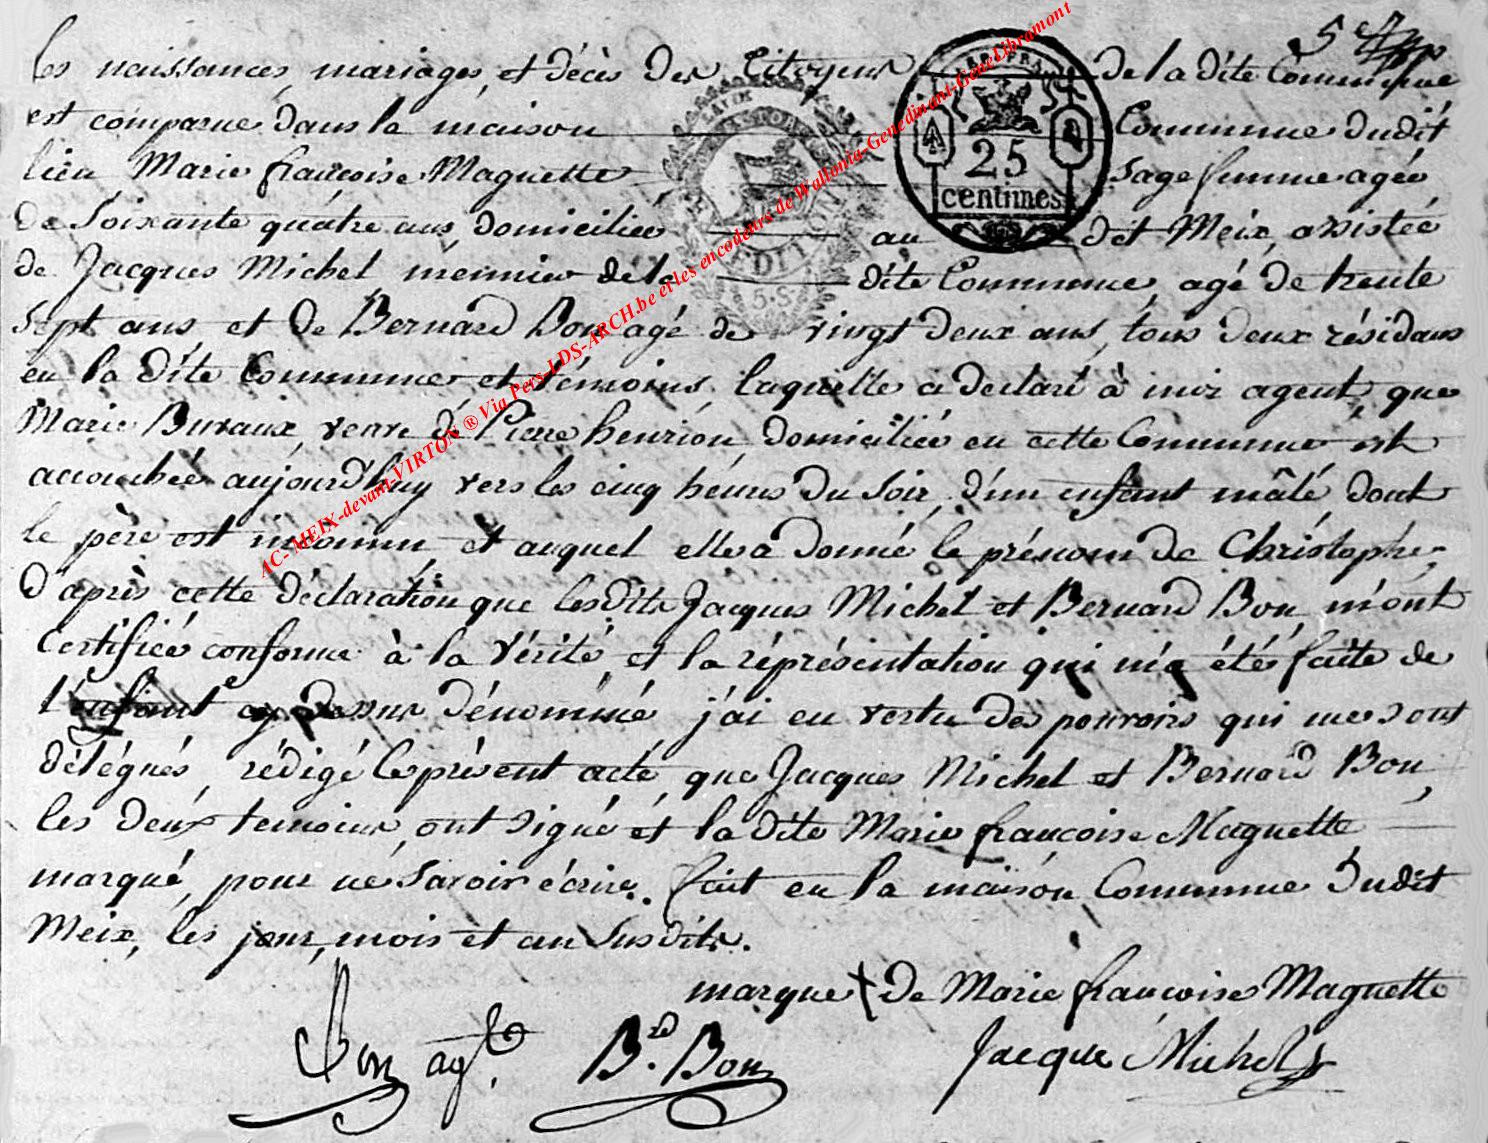 5
les naissances, mariages, et décès des Citoyens de la dite Commune
est comparue dans la maison Commune dudit
lieu Marie françoise Maguette Sage femme agée
de Soixante quatre ans domiciliée au dit Meix, assistée
de Jacques Michel meunier de la dite Commune, agé de trente
Sept ans et de Bernard Bon agé de vingt deux ans, tous deux résidans
en la dite Commune et témoins, laquelle a declaré à moi agent, que
Marie Buraux, veuve de Pierre henrion, domiciliée en cette Commune est
accouchée aujourd'huy vers les cinq heures du Soir, d'un enfant mâle dont
le père est inconnu et auquel elle a donné le prénom de Christophe,
D'après cette déclaration que lesdits Jacques Michel et Bernard Bon m'ont
Certifiée conforme à la Vérité, et la réprésentation qui m'a été faite de
l'enfant cy dessus dénommé, j'ai en vertu des pouvoirs qui me sont
délégués, rédigé le présent acte, que Jacques Michel et Bernard Bon,
les deux temoins, ont signé et la dite Marie françoise Maguette
marqué, pour ne Savoir écrire. fait en la maison Commune dudit
Meix, les jour, mois et an susdits.
marque + de Marie françoise Maguette
Bon agt. Bd. Bon Jacque Michel
REP. FRA.
25
centimes
AC- MEIX-devant-VIRTON ® Via Pers-LDS-ARCH.be et les encodeurs de Wallonia-Genedinant-GeneLibramont